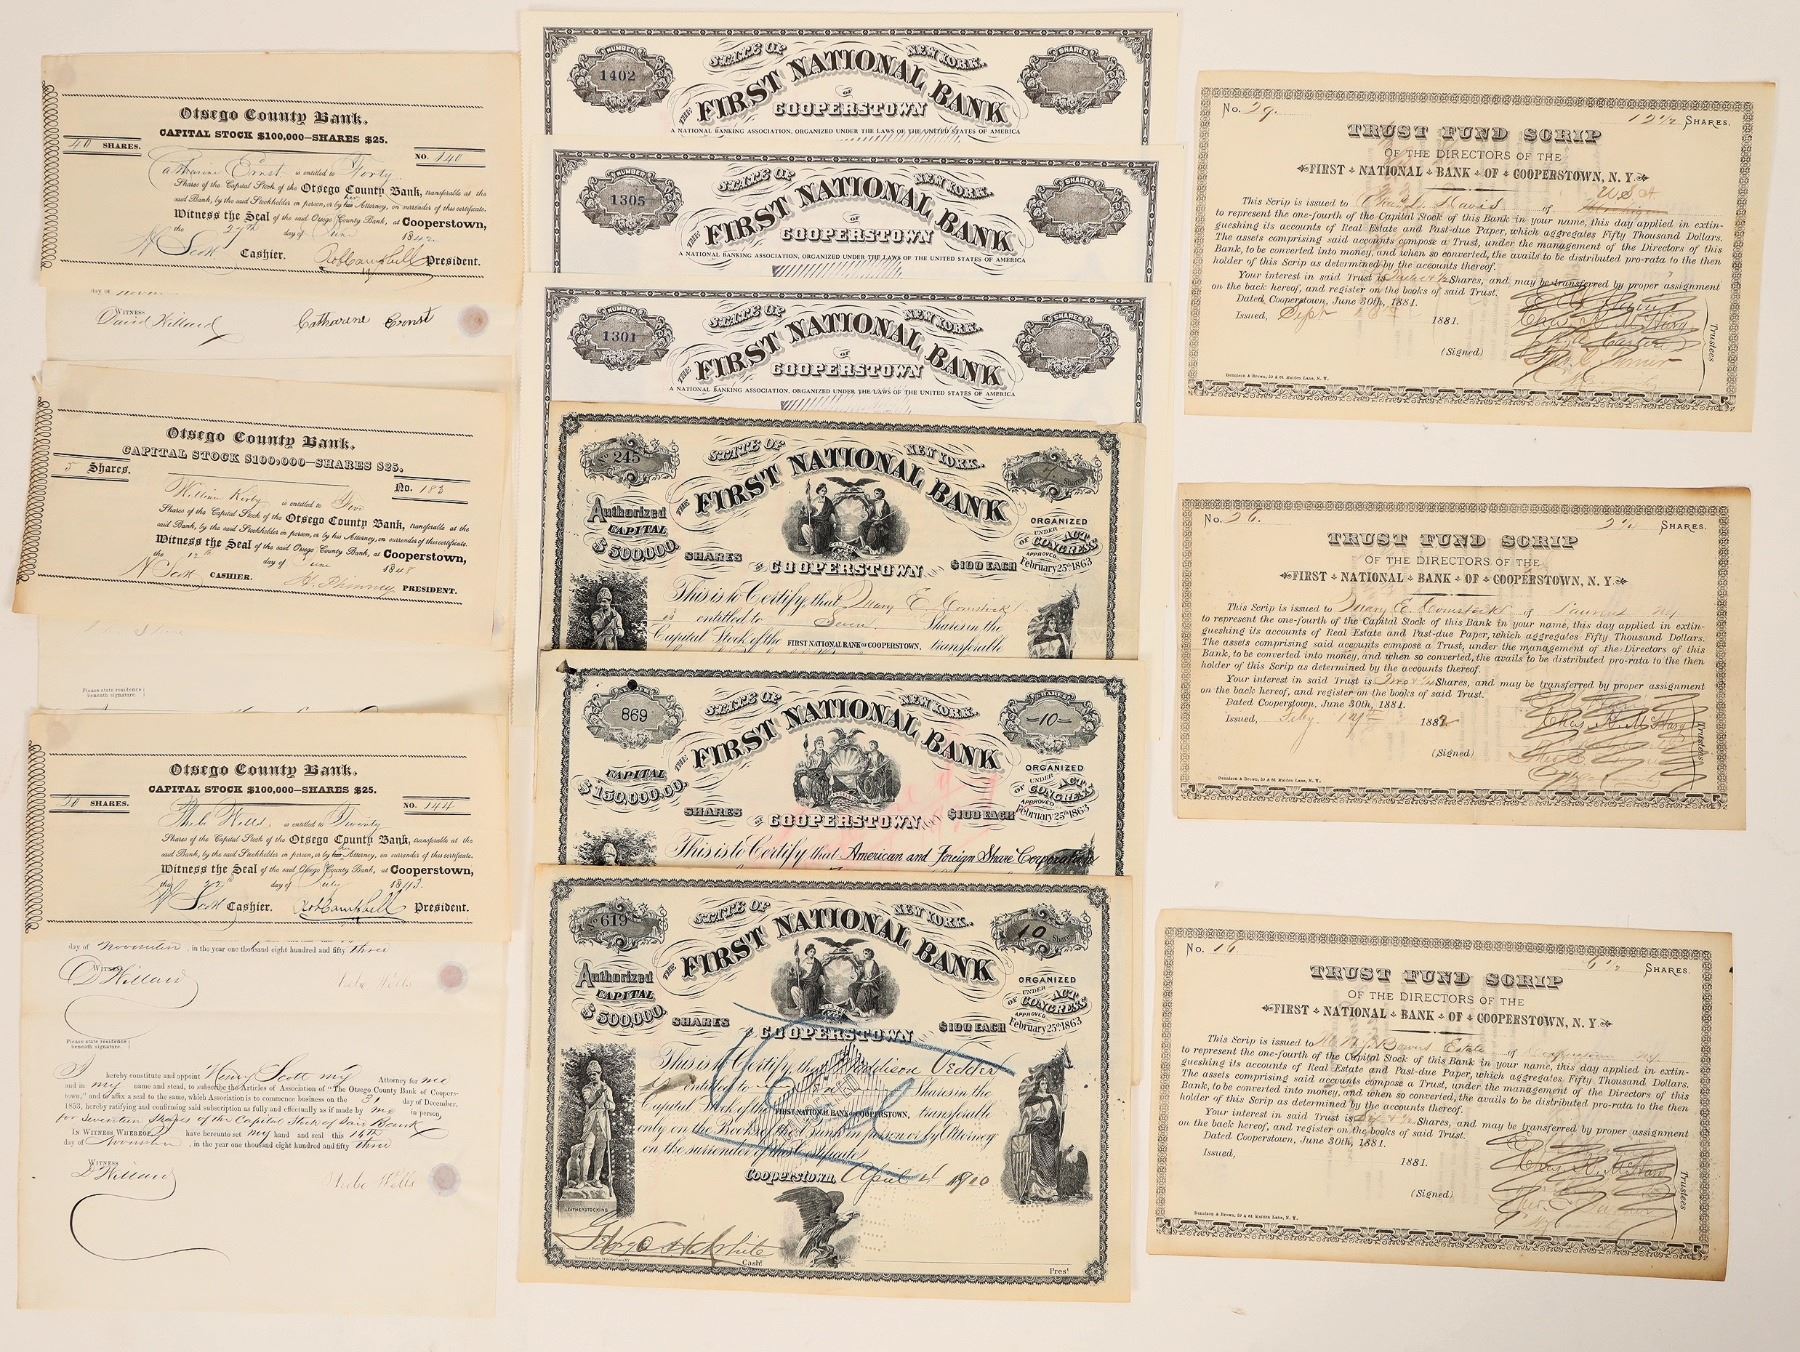 Otsego County Bank,
CAPITAL STOCK $100,000—SHARES $25.
40 SHARES.
NO. 140
Catharine Ernst is entitled to Forty
Shares of the Capital Stock of the Otsego County Bank, transferable at the
said Bank, by the said Stockholder in person, or by his Attorney, on surrender of this certificate.
Witness the Seal of the said Otsego County Bank, at Cooperstown,
the 27th day of June 1842
H Scott Cashier. Rob Campbell President.
WITNESS
David Willard Catharine Ernst
Otsego County Bank,
CAPITAL STOCK $100,000—SHARES $25.
5 Shares.
No. 183
William Kirby is entitled to Five
Shares of the Capital Stock of the Otsego County Bank, transferable at the
said Bank, by the said Stockholder in person, or by his Attorney, on surrender of this certificate.
Witness the Seal of the said Otsego County Bank, at Cooperstown,
the 12th day of June 1848
H Scott CASHIER. H. Phinney PRESIDENT.
Please state residence
beneath signature.
Otsego County Bank,
CAPITAL STOCK $100,000—SHARES $25.
SHARES.
NO. 144
Phebe Wells is entitled to
Shares of the Capital Stock of the Otsego County Bank, transferable at the
said Bank, by the said Stockholder in person, or by his Attorney, on surrender of this certificate.
Witness the Seal of the said Otsego County Bank, at Cooperstown,
the 22d day of July 1843
H Scott Cashier. Rob Campbell President.
day of November, in the year one thousand eight hundred and fifty three
WITNESS
D Willard Phebe Wells
Please state residence
beneath signature.
I hereby constitute and appoint Henry Scott my Attorney for me
and in my name and stead, to subscribe the Articles of Association of "The Otsego County Bank of Cooperstown,"
and to affix a seal to the same, which Association is to commence business on the 31 day of December,
1853, hereby ratifying and confirming said subscription as fully and effectually as if made by me in person,
for Seventeen Shares of the Capital Stock of said Bank
IN WITNESS WHEREOF have hereunto set my hand and seal this 15th
day of November, in the year one thousand eight hundred and fifty three
WITNESS
D Willard Phebe Wells
NUMBER
1402
STATE OF NEW YORK.
SHARES
THE FIRST NATIONAL BANK
OF
COOPERSTOWN
A NATIONAL BANKING ASSOCIATION, ORGANIZED UNDER THE LAWS OF THE UNITED STATES OF AMERICA
NUMBER
1305
STATE OF NEW YORK.
SHARES
THE FIRST NATIONAL BANK
OF
COOPERSTOWN
A NATIONAL BANKING ASSOCIATION, ORGANIZED UNDER THE LAWS OF THE UNITED STATES OF AMERICA
NUMBER
1301
STATE OF NEW YORK.
SHARES
THE FIRST NATIONAL BANK
OF
COOPERSTOWN
A NATIONAL BANKING ASSOCIATION, ORGANIZED UNDER THE LAWS OF THE UNITED STATES OF AMERICA
No 245
STATE OF NEW YORK.
7 Shares
THE FIRST NATIONAL BANK
Authorized
CAPITAL
$500,000.
ORGANIZED
UNDER
ACT
OF CONGRESS
APPROVED
February 25th 1863
SHARES $100 EACH
of COOPERSTOWN
This is to Certify, that Mary E. Comstock
is entitled to Seven Shares in the
Capital Stock of the FIRST NATIONAL BANK OF COOPERSTOWN, transferable
NUMBER
869
STATE OF NEW YORK.
SHARES
-10-
THE FIRST NATIONAL BANK
CAPITAL
$150,000.00.
ORGANIZED
UNDER
ACT
OF CONGRESS
APPROVED
February 25th 1863
SHARES $100 EACH
of COOPERSTOWN
This is to Certify that American and Foreign Share Corporation
No 619
STATE OF NEW YORK.
10 Shares
THE FIRST NATIONAL BANK
Authorized
CAPITAL
$500,000.
ORGANIZED
UNDER
ACT
OF CONGRESS
APPROVED
February 25th 1863
SHARES $100 EACH
of COOPERSTOWN
This is to Certify, that Maddison Vedder
is entitled to Ten Shares in the
Capital Stock of the FIRST NATIONAL BANK OF COOPERSTOWN, transferable
only on the Books of the Bank in person or by Attorney
on the surrender of this Certificate.
Cooperstown, April 4 1910
LEATHERSTOCKING
George H White
Cash!
Pres!
No. 29.
12 1/2 SHARES.
TRUST FUND SCRIP
OF THE DIRECTORS OF THE
FIRST NATIONAL BANK OF COOPERSTOWN, N. Y.
This Scrip is issued to Chas. L. Davis of U S A
to represent the one-fourth of the Capital Stock of this Bank in your name, this day applied in extin-
gueshing its accounts of Real Estate and Past-due Paper, which aggregates Fifty Thousand Dollars.
The assets comprising said accounts compose a Trust, under the management of the Directors of this
Bank, to be converted into money, and when so converted, the avails to be distributed pro-rata to the then
holder of this Scrip as determined by the accounts thereof.
Your interest in said Trust is Twelve & 1/2 Shares, and may be transferred by proper assignment
on the back hereof, and register on the books of said Trust.
Dated Cooperstown, June 30th, 1881.
Issued, Sept 1881.
(Signed)
Trustees
Dennison & Brown, 59 & 61 Maiden Lane, N. Y.
No. 26.
2 1/4 SHARES.
TRUST FUND SCRIP
OF THE DIRECTORS OF THE
FIRST NATIONAL BANK OF COOPERSTOWN, N. Y.
This Scrip is issued to Mary E. Comstock of Laurens NY
to represent the one-fourth of the Capital Stock of this Bank in your name, this day applied in extin-
gueshing its accounts of Real Estate and Past-due Paper, which aggregates Fifty Thousand Dollars.
The assets comprising said accounts compose a Trust, under the management of the Directors of this
Bank, to be converted into money, and when so converted, the avails to be distributed pro-rata to the then
holder of this Scrip as determined by the accounts thereof.
Your interest in said Trust is Two & 1/4 Shares, and may be transferred by proper assignment
on the back hereof, and register on the books of said Trust.
Dated Cooperstown, June 30th, 1881.
Issued, Feby. 14th 1882
(Signed)
Trustees
Dennison & Brown, 59 & 61 Maiden Lane, N. Y.
No. 16.
6 1/2 SHARES.
TRUST FUND SCRIP
OF THE DIRECTORS OF THE
FIRST NATIONAL BANK OF COOPERSTOWN, N. Y.
This Scrip is issued to Estate of
to represent the one-fourth of the Capital Stock of this Bank in your name, this day applied in extin-
gueshing its accounts of Real Estate and Past-due Paper, which aggregates Fifty Thousand Dollars.
The assets comprising said accounts compose a Trust, under the management of the Directors of this
Bank, to be converted into money, and when so converted, the avails to be distributed pro-rata to the then
holder of this Scrip as determined by the accounts thereof.
Your interest in said Trust is Six & 1/2 Shares, and may be transferred by proper assignment
on the back hereof, and register on the books of said Trust.
Dated Cooperstown, June 30th, 1881.
Issued, 1881.
(Signed)
Trustees
Dennison & Brown, 59 & 61 Maiden Lane, N. Y.